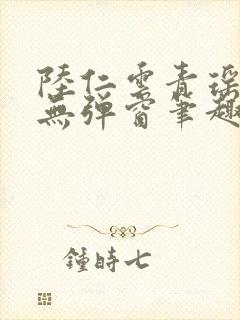 陸仁雲青瑤
無彈窗筆趣
鍾時七